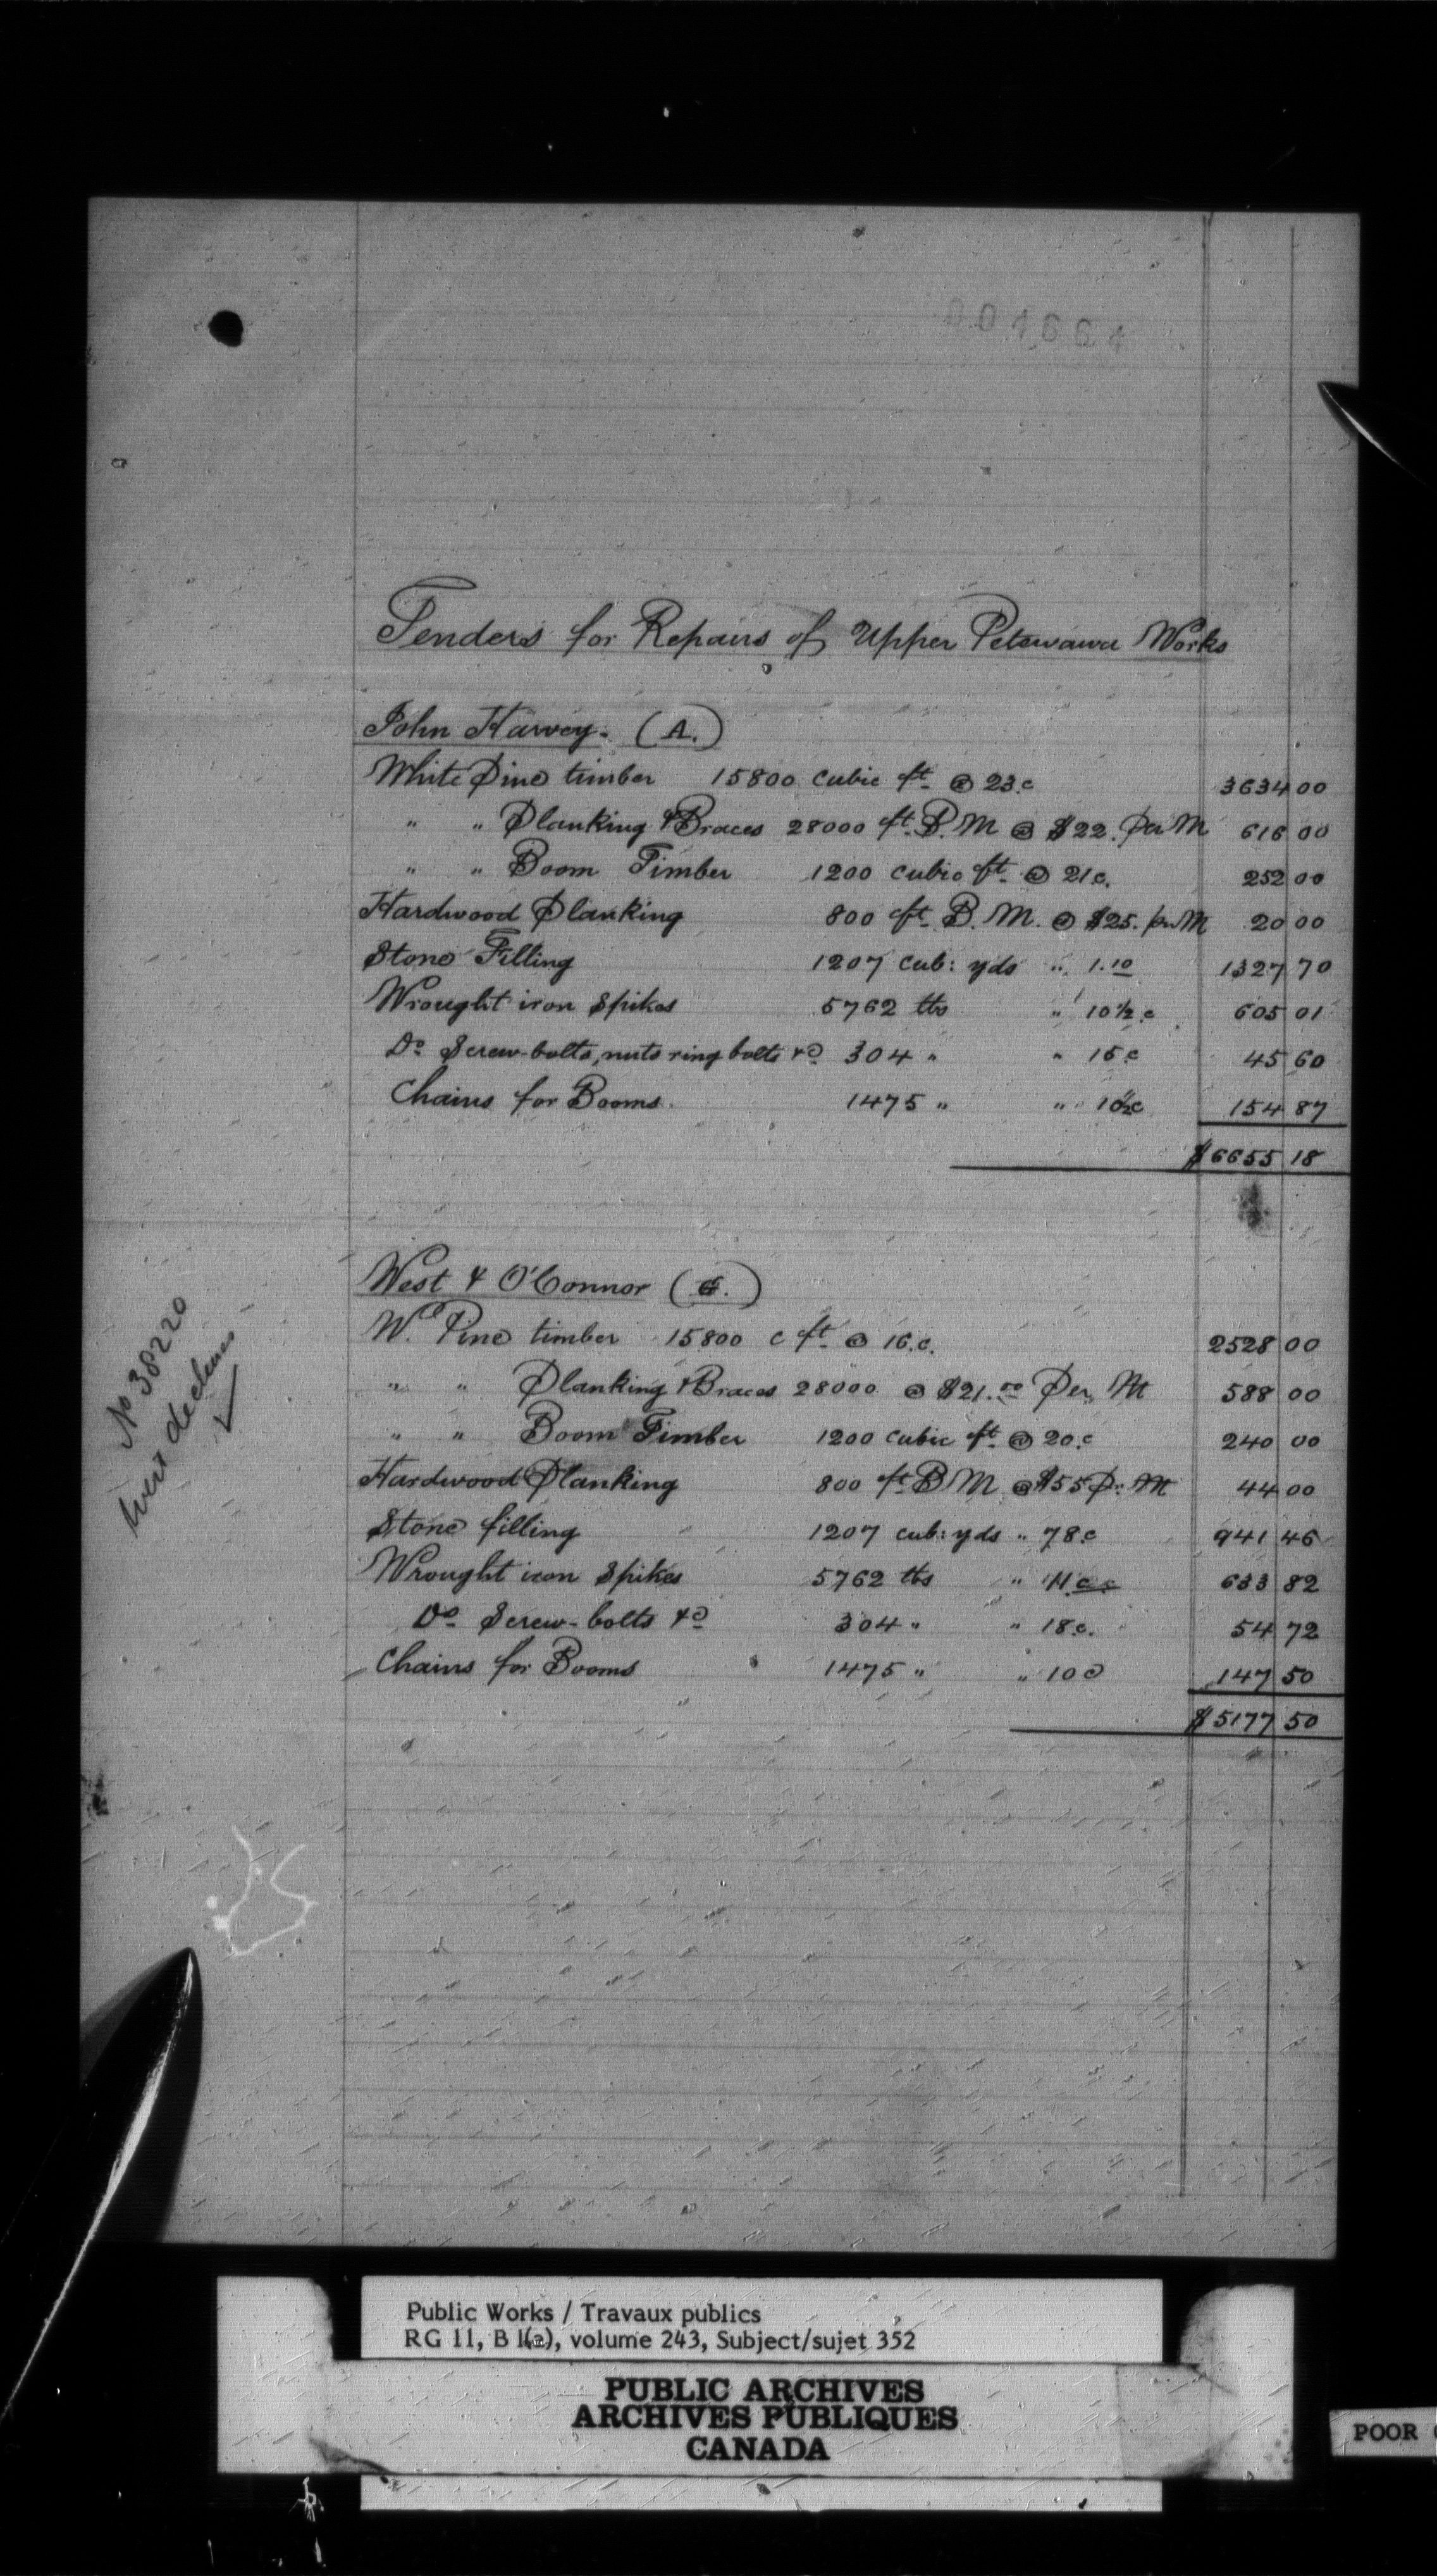 Tenders for Repairs of Upper Petewawa Works
John Harvey. (A.)
White Pine timber 15800 cubic ft @ 23.c 3634 00
" " Planking & Braces 28000 ft. B.M @ $22. Per M 616 00
" " Boom Timber 1200 cubic ft. @ 21c. 252 00
Hardwood Planking 800 ft. B.M. @ $25. per M 20 00
Stone Filling 1207 cub: yds " 1.10 1327 70
Wrought iron Spikes 5762 lbs " 10½.c 605 01
Do Screw-bolts, nuts ring bolts &c 304 " " 15.c 45 60
Chains for Booms. 1475 " " 10½c 154 87
$6655 18
West & O'Connor (G.)
W. Pine timber 15800 c ft @ 16.c. 2528 00
" " Planking & Braces 28000 @ $21.00 Per M 588 00
" " Boom Timber 1200 cubic ft. @ 20.c 240 00
Hardwood Planking 800 ft. B M @ $55 Pr M 44 00
Stone filling 1207 cub: yds " 78.c 941 46
Wrought iron Spikes 5762 lbs " 11.c 633 82
Do Screw-bolts &c 304 " " 18.c. 54 72
Chains for Booms 1475 " " 10c 147 50
$5177 50
No 38220
West declines
Public Works / Travaux publics
RG 11, B 1(a), volume 243, Subject/sujet 352
PUBLIC ARCHIVES
ARCHIVES PUBLIQUES
CANADA
POOR